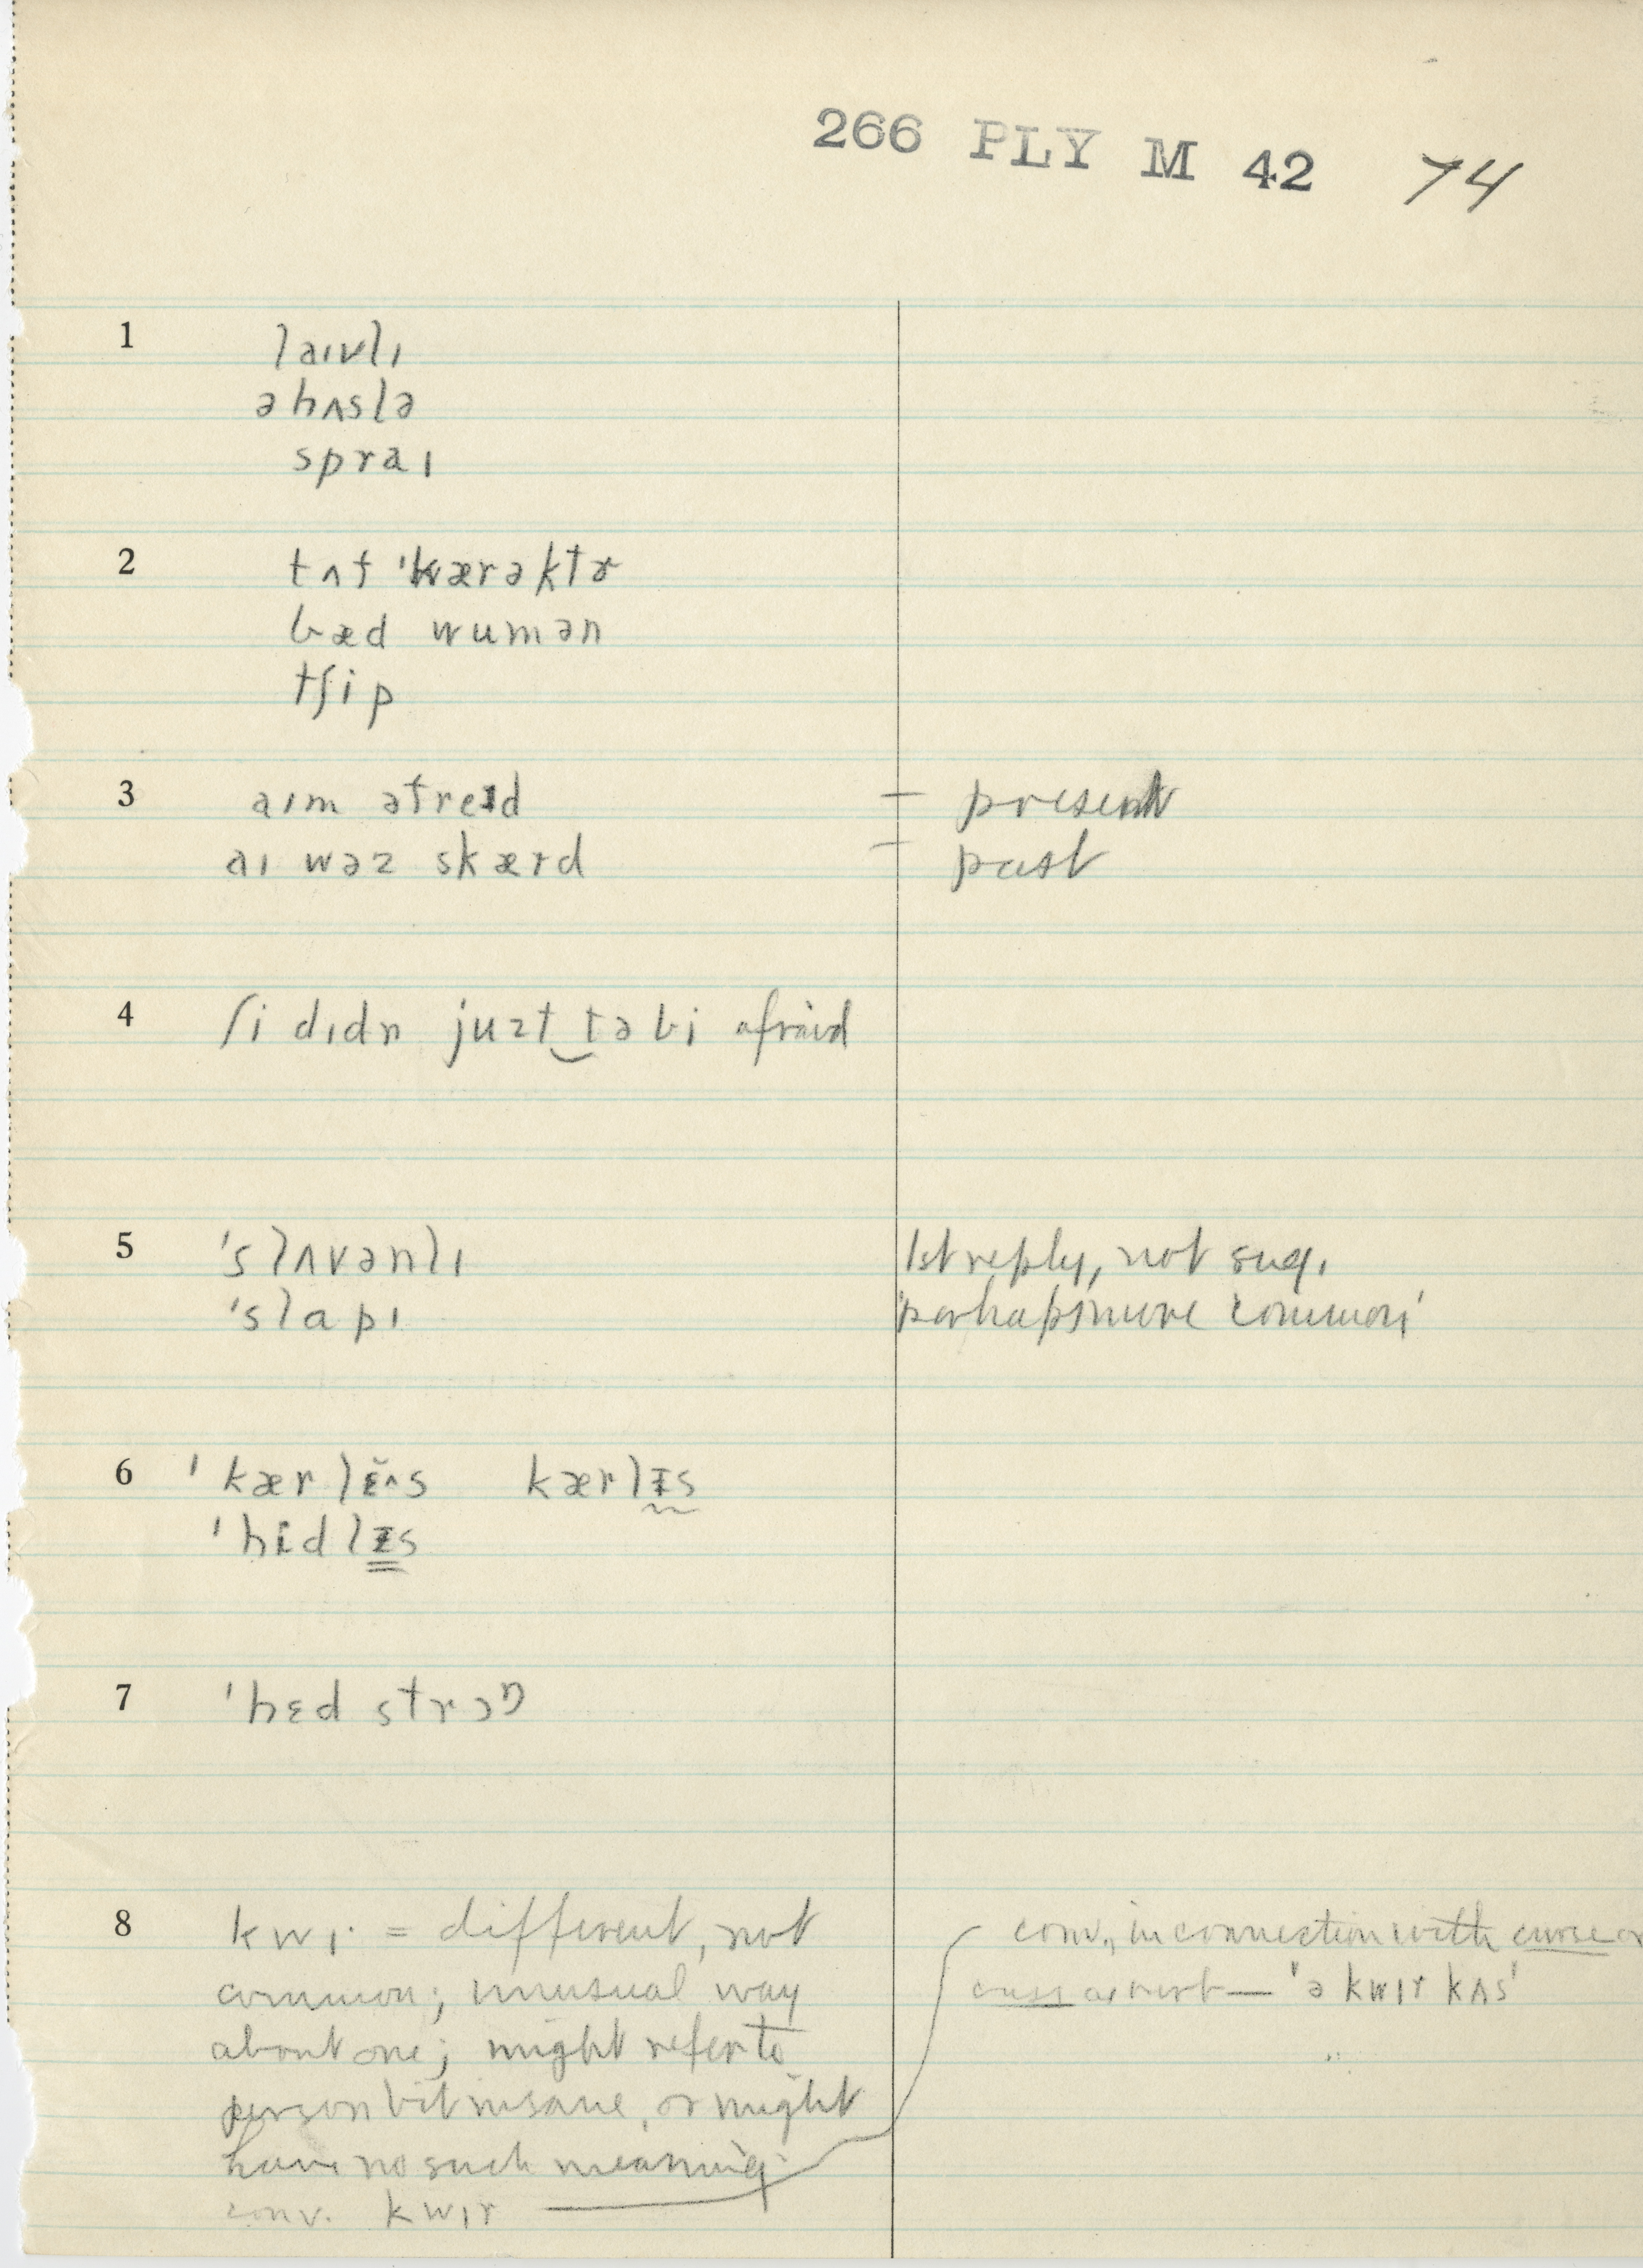 266 PLY M 42 74
1 laɪvlɪ
ə hʌslə
spraɪ
2 tʌf 'kærəktɚ
bæd wumən
tʃip
3 aɪm əfreɪd — present
aɪ wəz skærd — past
4 ʃi dɪdn juzt‿tə bi afraid
5 'slʌvənlɪ 1st reply, not sug.
'slapɪ 'perhaps more common'
6 'kærlɛ̌^s kærlɪs
'hɛdlɪs
7 'hɛd strɔŋ
8 kwɪ· = different, not
common; unusual way
about one; might refer to
person bit insane, or might
have no such meaning
conv. kwɪr
conv., in connection with curse or
cuss as vert — 'ə kwɪr kʌs'